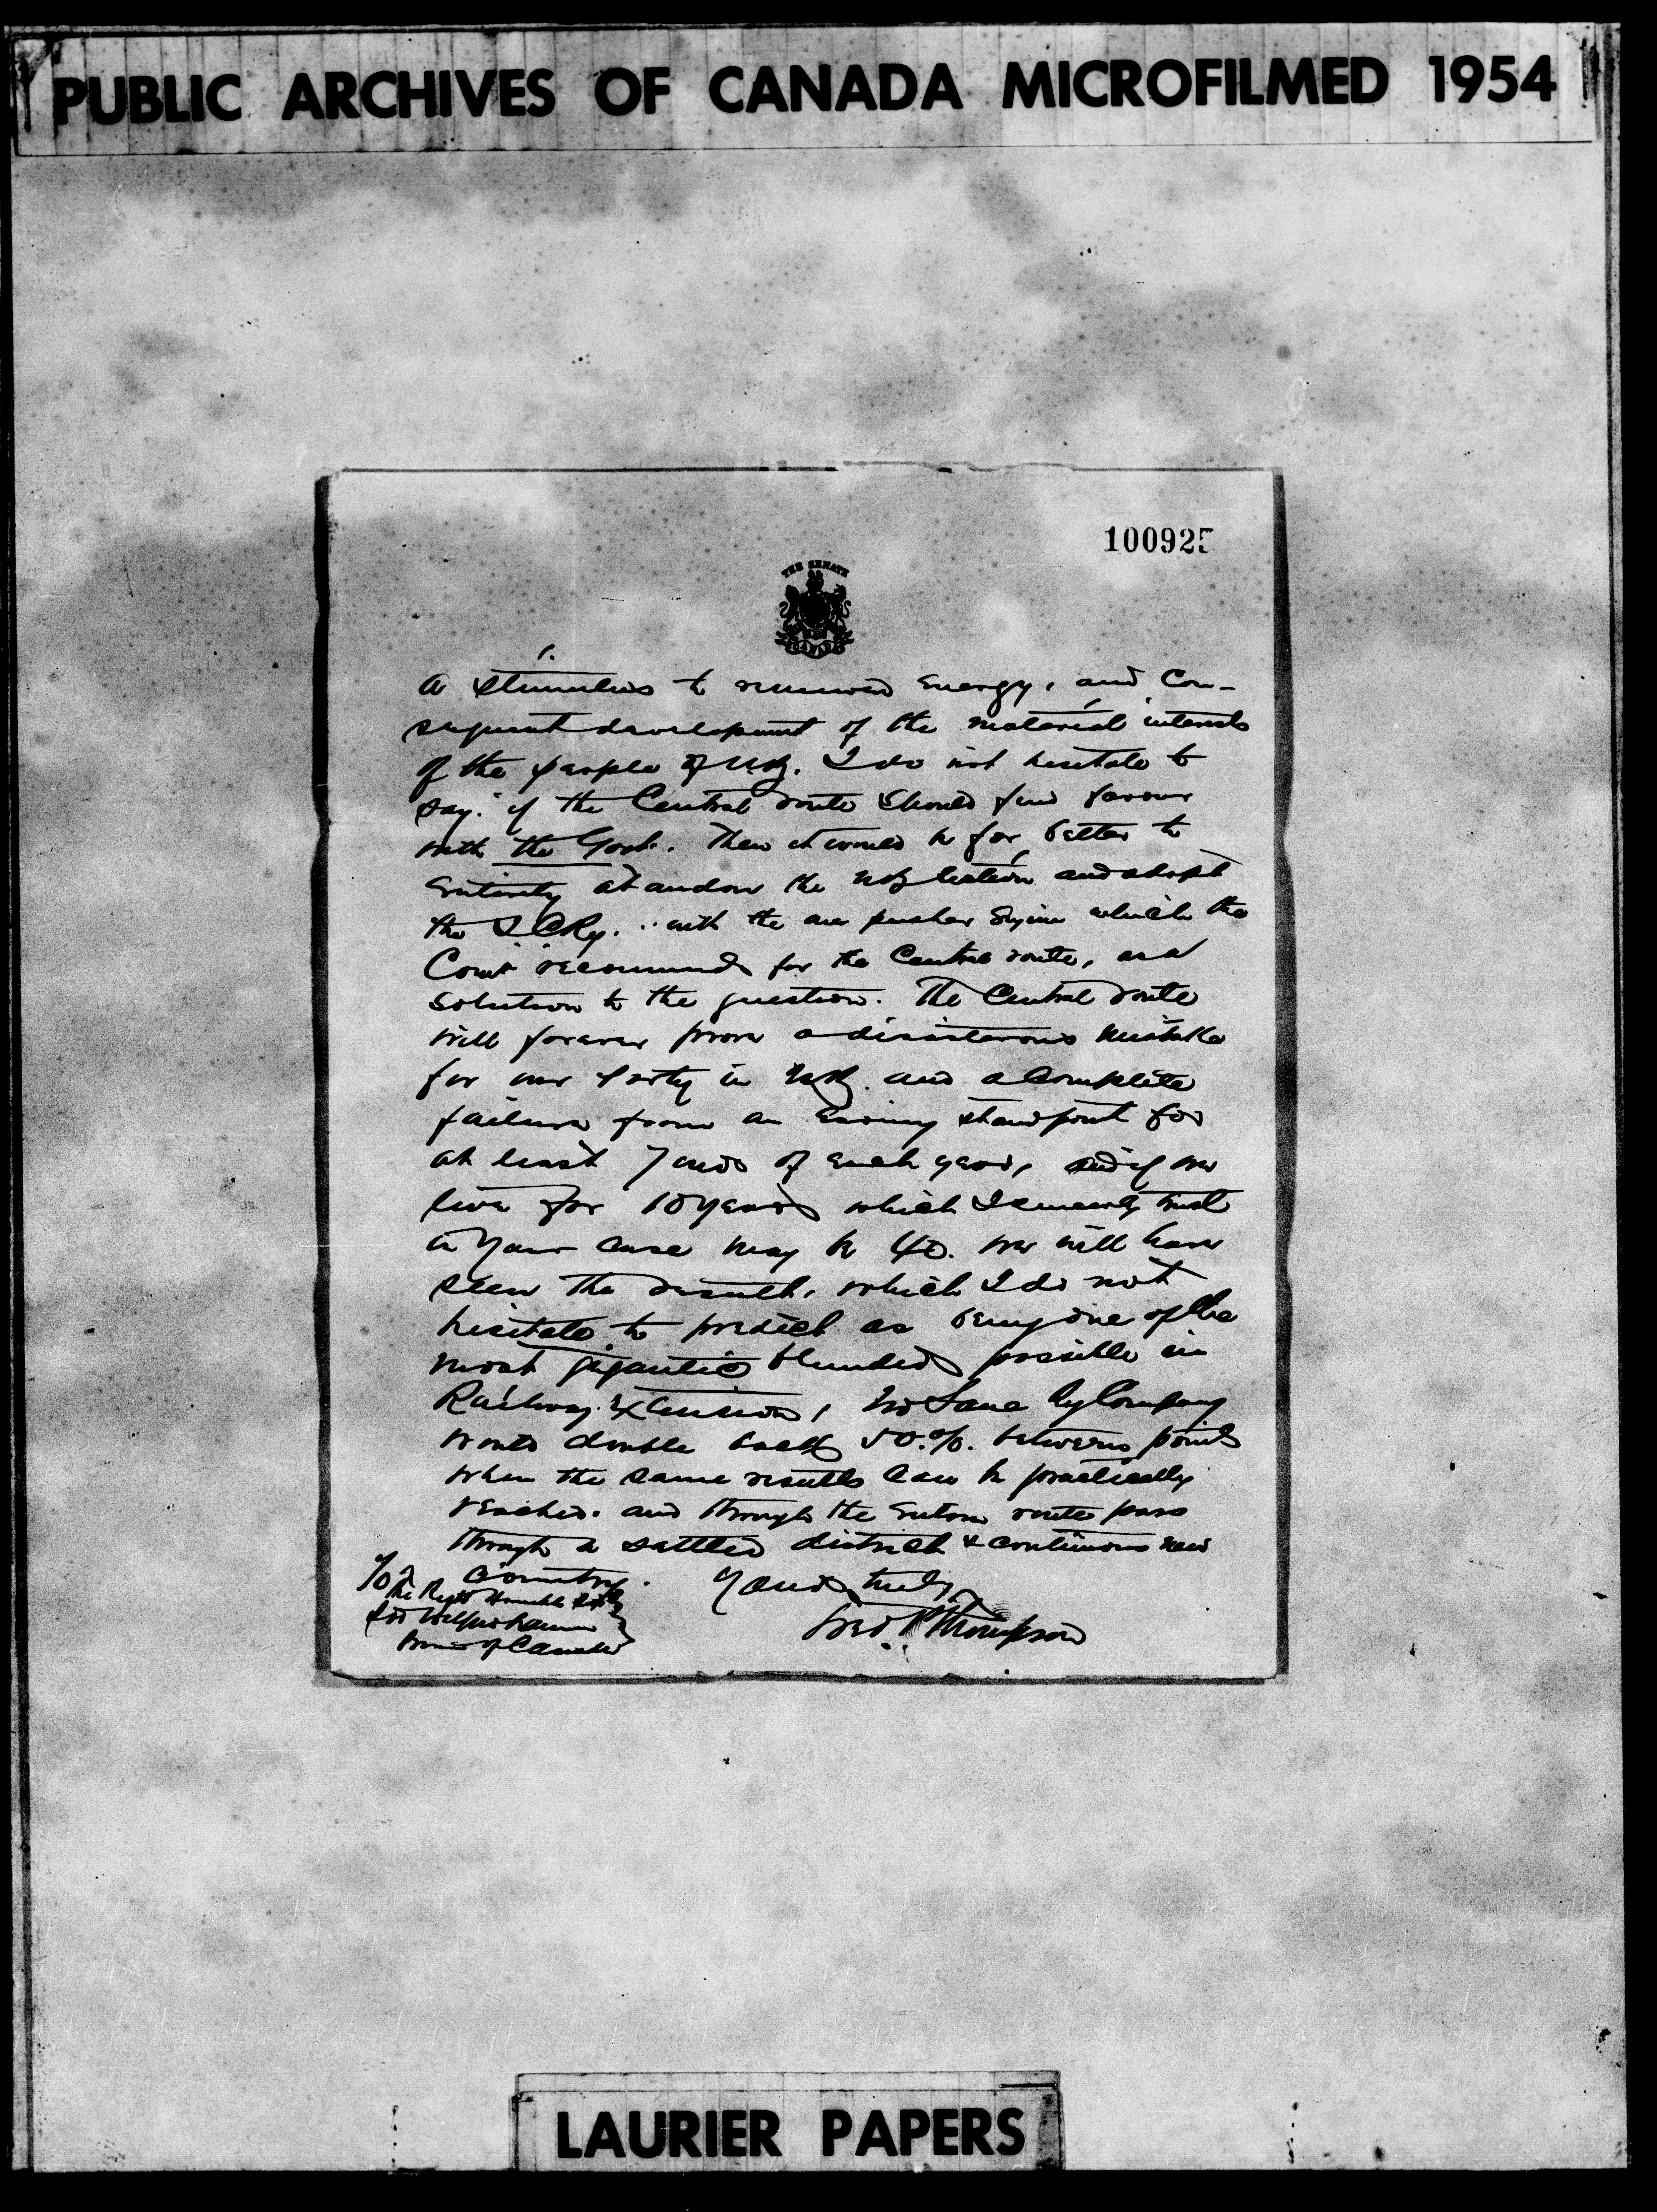 PUBLIC ARCHIVES OF CANADA MICROFILMED 1954
100925
THE SENATE
CANADA
a stimulus to renewed Energy, and Con-
sequent development of the material interests
of the people of N.B. I do not hesitate to
say. if the Central route should find favour
with the Govt. Then it would be far better to
Entirely abandon the NB section and adopt
the I.C.Ry. with the one pusher Engine which the
Comt recommends for the Central route, as a
solution to the question. The Central route
will forever prove a disasterous mistake
for our party in N.B. and a Complete
failure from an Earning standpoint for
at least 7 mos of Each year, and if we
live for 10 years which I sincerely trust
in your case may be 40. we will have
seen the result, which I do not
hesitate to predict as being one of the
most gigantic blunders possible in
Railway Extension, no Sane Ry Company
would double back 50.%. between points
when the same results can be practically
reached. and through the route pass
through a settled district & continuous new
Country. Yours truly
To
The Right Honorable
Sir Wilfrid Laurier
Premier of Canada
Fred P Thompson
LAURIER PAPERS